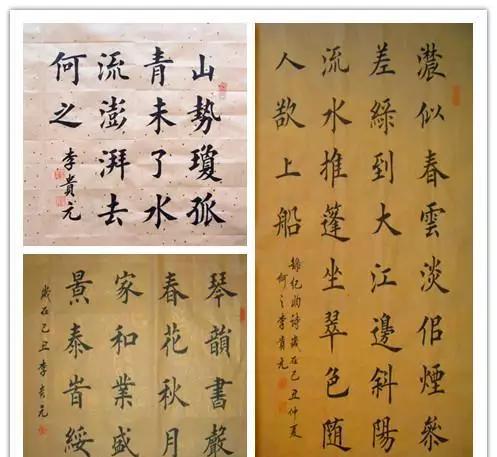 山勢瓊孤
青未了水
流澎湃去
何之
李貴元
琴韻書聲
春花秋月
家和業盛
景泰旹綏
歲在己丑李貴元
濃似春雲淡佀煙叅
差綠到大江邊斜陽
流水推蓬坐翠色隨
人欲上船
錄紀昀詩歲在己丑仲夏
何之李貴元